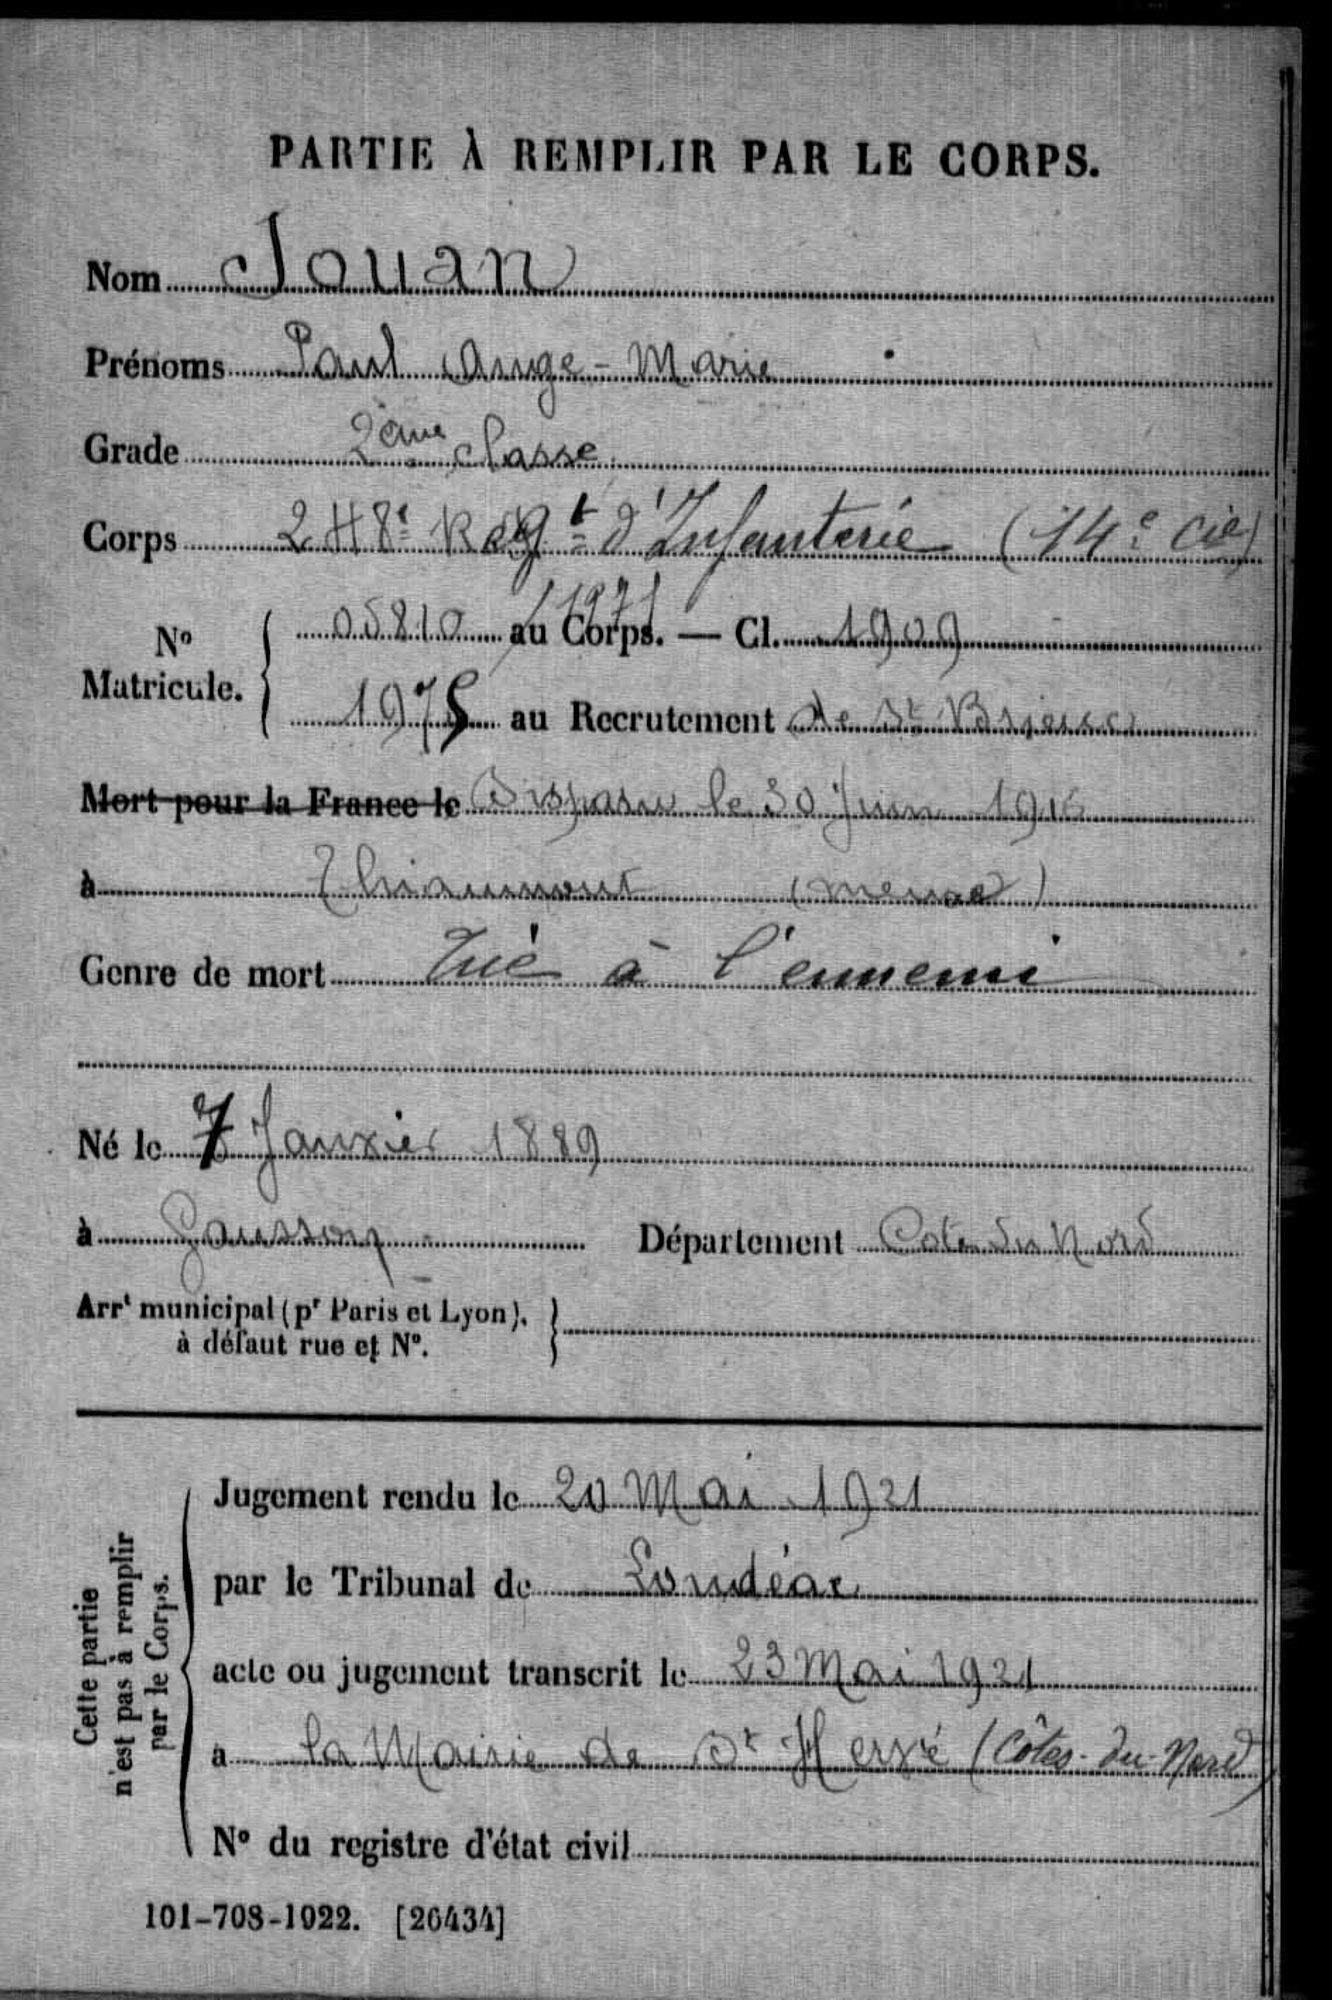 PARTIE À REMPLIR PAR LE CORPS.
Nom Jouan
Prénoms Paul Ange-Marie
Grade 2ème classe
Corps 248e Regt d'Infanterie (14e Cie)
No Matricule. { 05810 au Corps. — Cl. 1909
1975 au Recrutement de St Brieuc
Mort pour la France le Disparu le 30 Juin 1916
à Thiaumont (meuse)
Genre de mort Tué à l'ennemi
Né le 7 Janvier 1889
à Gausson Département Cotes du Nord
Arrt municipal (pr Paris et Lyon), à défaut rue et No. }
Jugement rendu le 20 Mai 1921
par le Tribunal de Loudéac
acte ou jugement transcrit le 23 Mai 1921
à la Mairie de St Hervé (Côtes-du-Nord)
No du registre d'état civil
Cette partie
n'est pas à remplir
par le Corps.
101-708-1922. [26434]